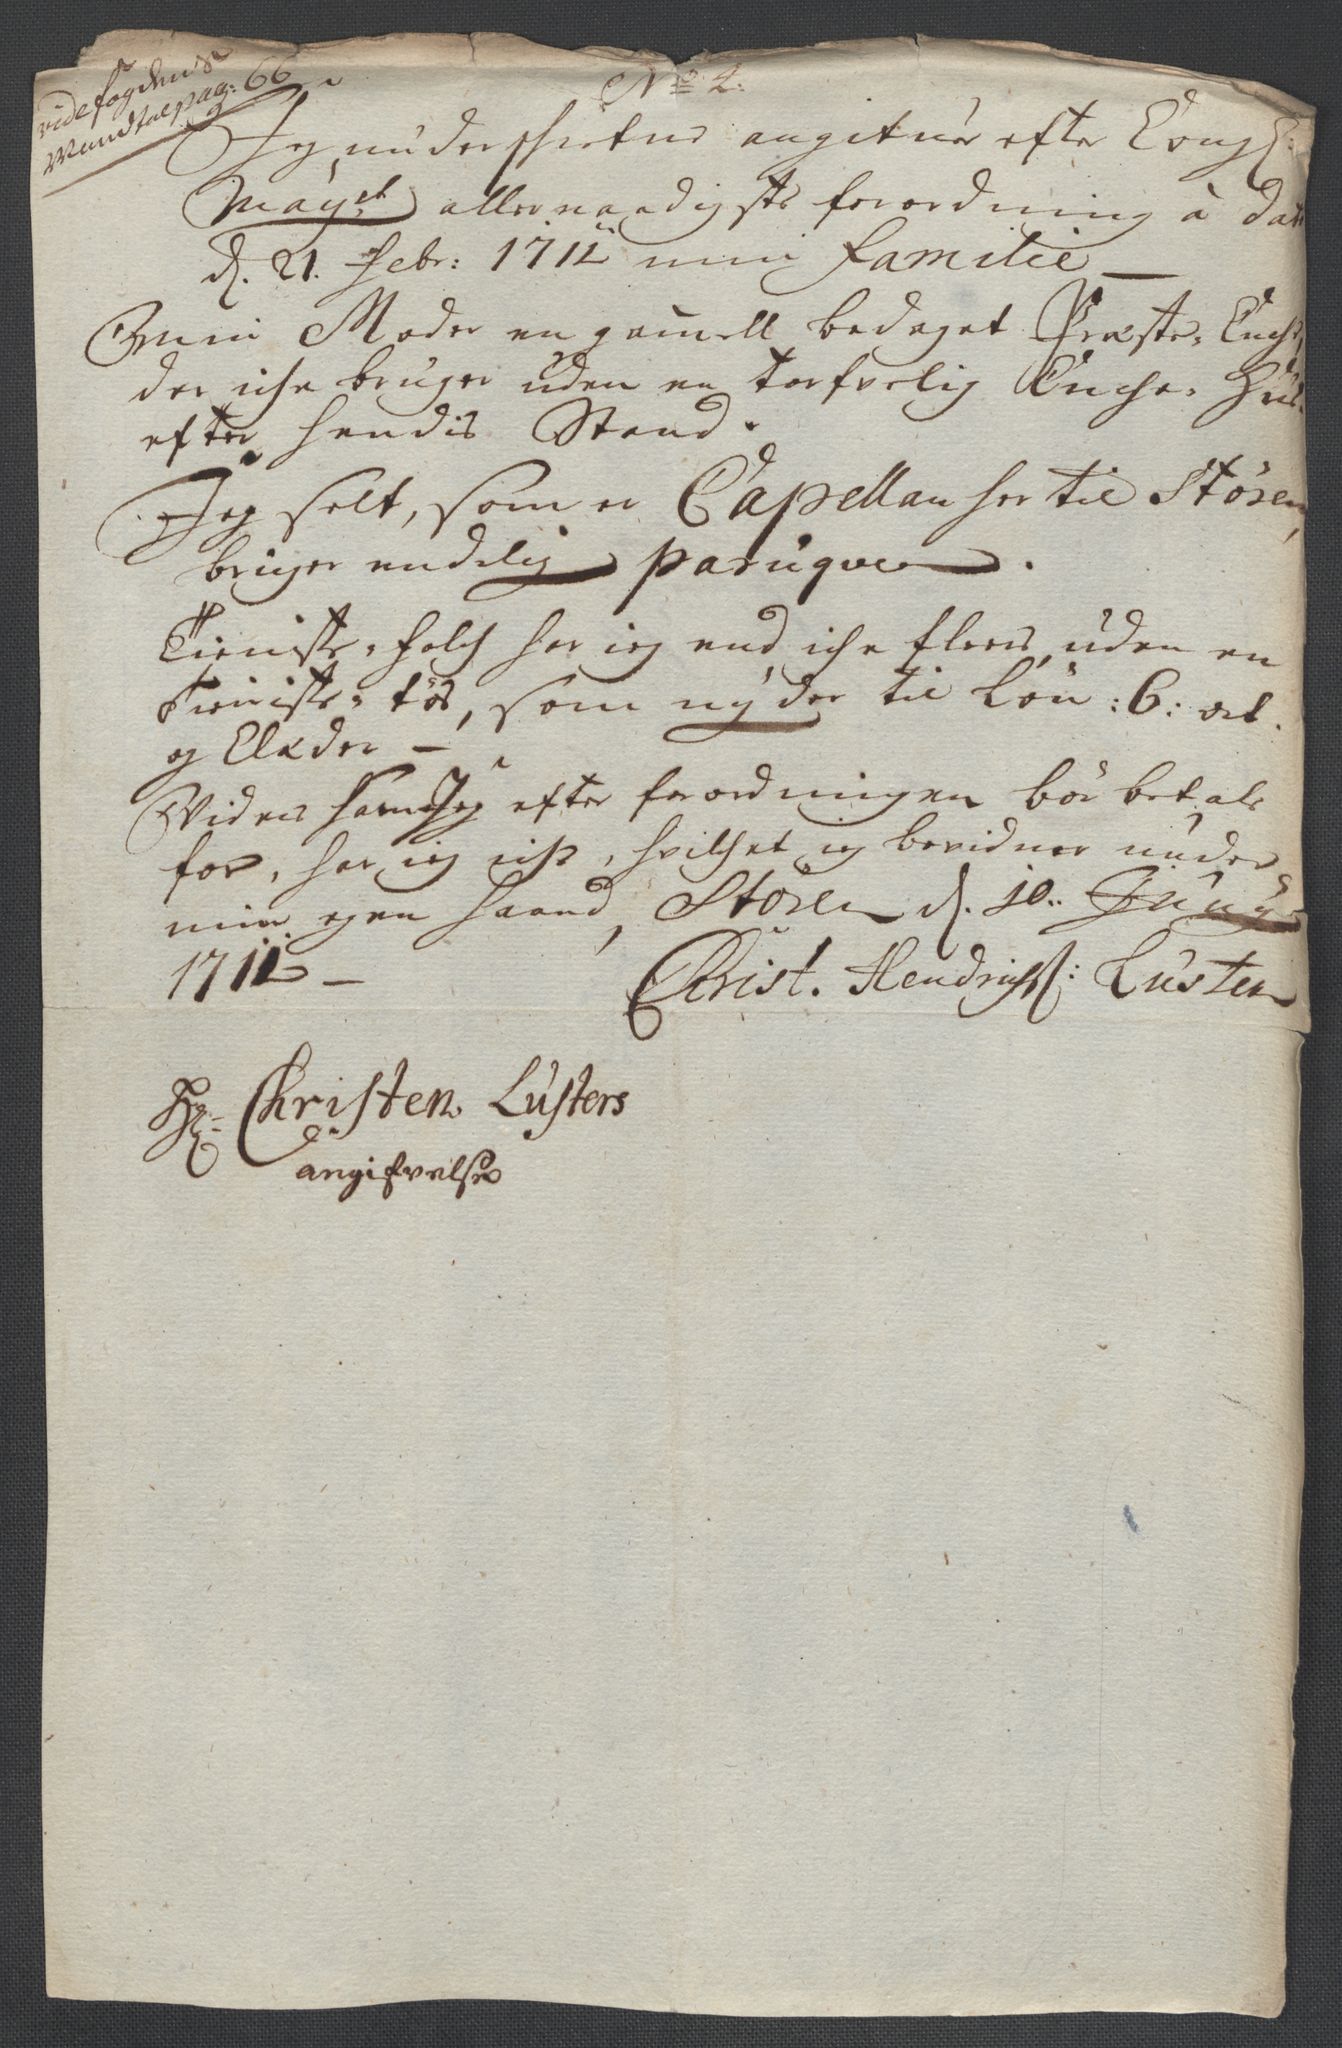 vide fogdens
Mandtal pag: 66
No 2:
Jeg underschrefne angifuer efter Kongl:
Mayst allernaadigste forordning à dato
d. 21. Febr: 1711 min familie
Min Moder en gammell bedaget Præste-Enche,
der iche bruger uden en tarfvelig Enche-Huus
efter hendis Stand.
Jeg selt, som er Capellan her til Stören,
bruger endelig paruqve.
Tieniste-folch har ieg end iche fleere, uden en
Tieniste-tös, som nyder til Lön :6: ort.
og Klæder
Videre som Jeg efter forordningen bör betale
for, har ieg icke, hvilchet ieg bevidner under
min egen haand, Stören d. 10. Juny
1711
Christ. Hendrichs: Luster
Hr: Christen Lusters
angifvelse